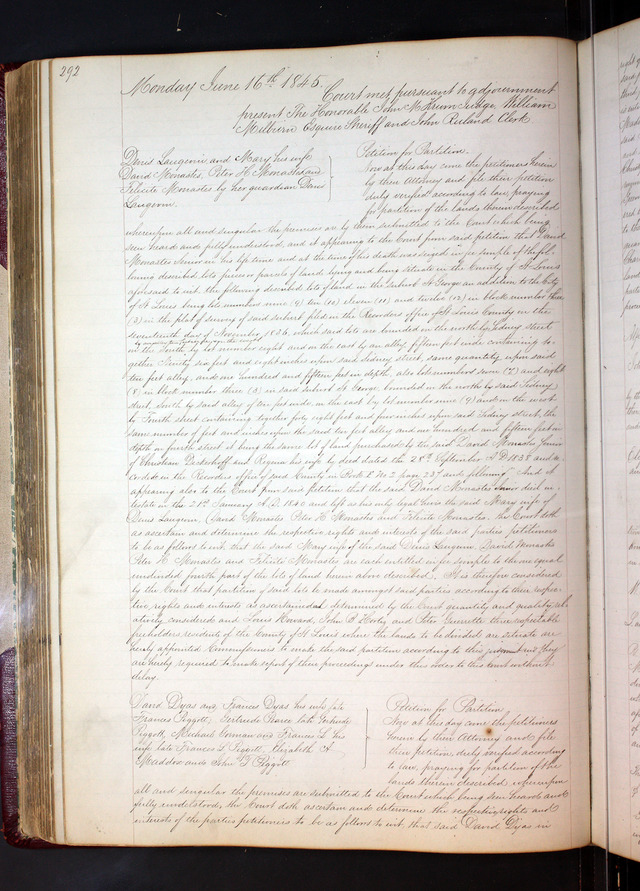 292
Monday June 16th 1845. Court met pursuant to adjournment
present The Honorable John M Krum Judge, William
Milburn Esquire Sheriff and John Ruland Clerk
Denis Laugerin and Mary his wife
David Monastes, Peter H. Monastes and
Felicite Monastes by her guardian Denis
Laugerin.
Petition for Partition.
Now at this day come the petitioners herein
by their Attorney and file their petition
duly verified according to law, praying
for partition of the lands therein described
whereupon all and singular the premises are by them submitted to the Court which being
seen heard and fully understood, and it appearing to the Court from said petition that David
Monastes Senior in his life time and at the time of his death was seized in fee simple of the fol
lowing described lots pieces or parcels of land lying and being situate in the County of St Louis
aforesaid to wit, the following described lots of land in the Suburb St George an addition to the City
of St Louis being lots numbers nine (9) ten (10) eleven (11) and twelve (12) in block number three
(3) in the plat of survey of said suburb filed in the Recorders office of St Louis County on the
seventeenth day of November 1836, which said lots are bounded on the north by Sidney street
on the South by lot number eight and on the east by an alley fifteen feet wide containing to-
gether Ninety six feet and eight inches upon said Sidney street, same quantity upon said
ten feet alley, and one hundred and fifteen feet in depth, also lots numbers seven (7) and eight
(8) in block number three (3) in said suburb St George, bounded on the north by said Sidney
street, South by said alley of ten feet wide, on the east by lot number nine (9) and on the west
by Fourth street containing together forty eight feet and four inches upon said Sidney street, the
same number of feet and inches upon the said ten feet alley and one hundred and fifteen feet in
depth on fourth street it being the same lot of land purchased by the said David Monastes Senior
of Christian and Regina his wife by deed dated the 28th September A D. 1838 and re-
corded in the Recorders office of said County in Book No 2 page 237 and following. And it
appearing also to the Court from said Petition that the said David Monastes Senior died in-
testate on the 21st January A. D. 1840 and left as his only legal heirs the said Mary wife of
Denis Laugerin, David Monastes Peter H Monastes and Felicite Monastes, the Court doth
as ascertain and determine the respective rights and interests of the said parties petitioners
to be as follows to wit that the said Mary wife of the said Denis Laugerin David Monastes
Peter H Monastes and Felicite Monastes are each entitled in fee simple to the one equal
undivided fourth part of the lots of land herein above described, It is therefore considered
by the Court that partition of said lots be made amongst said parties according to their respec
tive rights and interests as ascertained determined by the Court quantity and quality rel
atively considered and Louis Howard, John B Hortiz and Peter Guerrette three respectable
freeholders residents of the County of St Louis where the lands to be divided are situate are
hereby appointed Commissioners to make the said partition according to this judgment and they
are hereby required to make report of their proceedings under this order to this Court without
delay.
David Dyas and Frances Dyas his wife late
Frances Piggott, Gertrude Pearce late Gertrude
Piggott, Michael Gorman and Frances L his
wife late Frances L. Piggott, Elizabeth A
Maddox and John F Piggott
Petition for Partition
Now at this day come the petitioners
herein by their Attorney and file
their petition duly verified according
to law, praying for partition of the
lands therein described, whereupon
all and singular the premises are submitted to the Court which being seen heard and
fully understood, the Court doth ascertain and determine the respective rights and
interests of the parties petitioners to be as follows to wit, that said David Dyas in